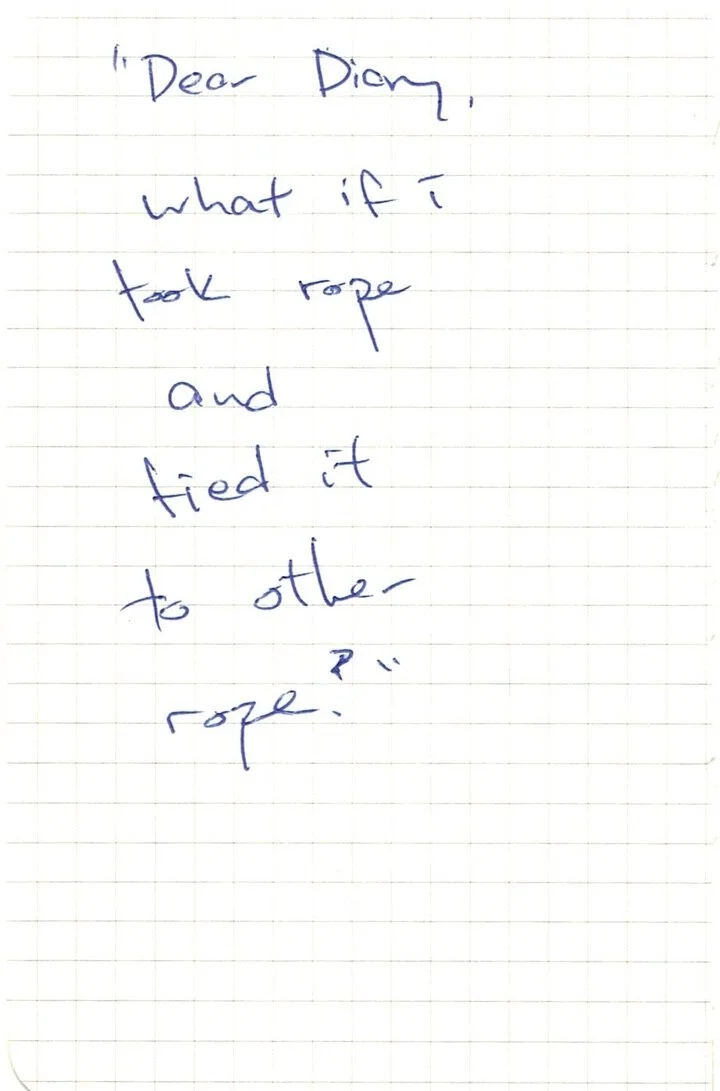 "Dear Diary,
what if i
took rope
and
tied it
to other
rope?"